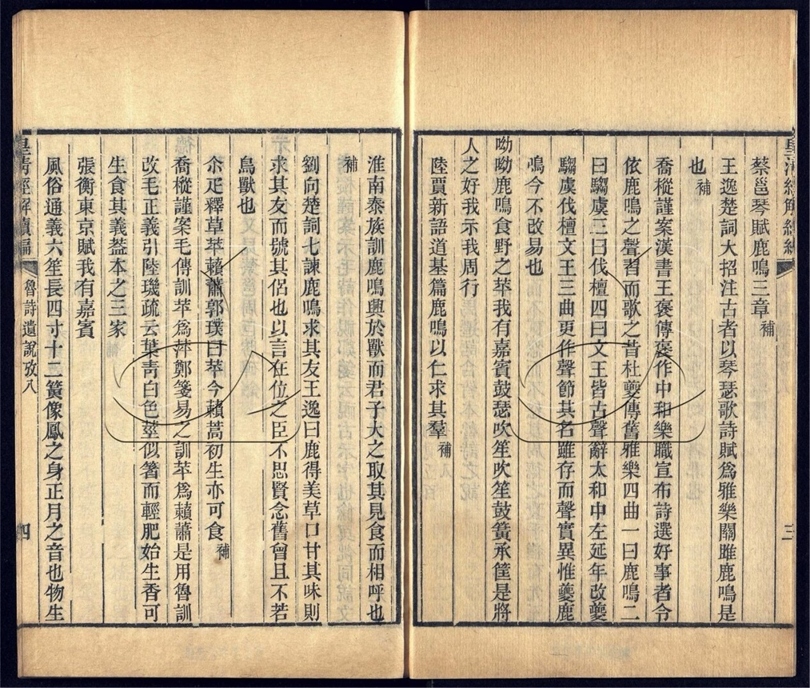 皇清經解續編
三
蔡邕琴賦鹿鳴三章補
王逸楚詞大招注古者以琴瑟歌詩賦爲雅樂關雎鹿鳴是
也補
喬樅謹案漢書王褒傳褒作中和樂職宣布詩選好事者令
依鹿鳴之聲習而歌之昔杜夔傳舊雅樂四曲一曰鹿鳴二
曰騶虞三曰伐檀四曰文王皆古聲辭太和中左延年改夔
騶虞伐檀文王三曲更作聲節其名雖存而聲實異惟夔鹿
鳴今不改易也
呦呦鹿鳴食野之苹我有嘉賓鼓瑟吹笙吹笙鼓簧承筐是將
人之好我示我周行
陸賈新語道基篇鹿鳴以仁求其羣補
淮南泰族訓鹿鳴興於獸而君子大之取其見食而相呼也
補
劉向楚詞七諫鹿鳴求其友王逸曰鹿得美草口甘其味則
求其友而號其侶也以言在位之臣不思賢念舊曾且不若
鳥獸也
尒疋釋草苹藾蕭郭璞曰苹今藾蒿初生亦可食補
喬樅謹案毛傳訓苹爲蓱鄭箋易之訓苹爲藾蕭是用魯訓
改毛正義引陸璣疏云葉青白色莖似箸而輕肥始生香可
生食其義葢本之三家
張衡東京賦我有嘉賓
風俗通義六笙長四寸十二簧像鳳之身正月之音也物生
皇清經解續編
魯詩遺說攷八
四